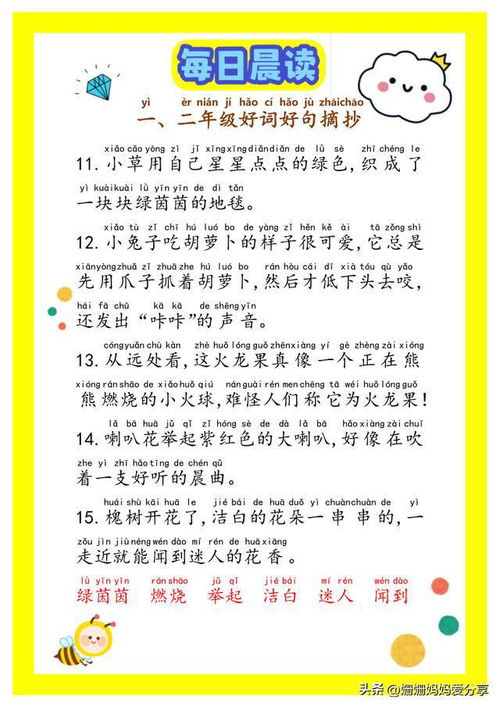 每日晨读
yì èr nián jí hǎo cí hǎo jù zhāichāo
一、二年级好词好句摘抄
xiǎo cǎo yòng zì jǐ xīng xīng diǎn diǎn de lǜ sè zhī chéng le
11. 小草用自己星星点点的绿色,织成了
yí kuài kuài lǜ yīn yīn de dì tǎn
一块块绿茵茵的地毯。
xiǎo tù zǐ chī hú luó bo de yàng zi hěn kě ài tā zǒng shì
12. 小兔子吃胡萝卜的样子很可爱,它总是
xiān yòng zhuǎ zi zhuā zhe hú luó bo rán hòu cái dī xià tóu qù yǎo
先用爪子抓着胡萝卜,然后才低下头去咬,
hái fā chū kā kā de shēng yīn
还发出“咔咔”的声音。
cóng yuǎn chù kàn zhè huǒ lóng guǒ zhēn xiàng yí gè zhèng zài xióng
13. 从远处看,这火龙果真像一个正在熊
xióng rán shāo de xiǎo huǒ qiú nán guài rén men chēng tā wéi huǒ lóng guǒ
熊燃烧的小火球,难怪人们称它为火龙果!
lǎ bā huā jǔ qǐ zǐ hóng sè de dà lǎ bā hǎo xiàng zài chuī
14. 喇叭花举起紫红色的大喇叭,好像在吹
zhe yì zhī hǎo tīng de chén qǔ
着一支好听的晨曲。
huái shù kāi huā le jié bái de huā duǒ yì chuàn chuàn de yì
15. 槐树开花了,洁白的花朵一串串的,一
zǒu jìn jiù néng wén dào mí rén de huā xiāng
走近就能闻到迷人的花香。
lǜ yīn yīn rán shāo jǔ qǐ jié bái mí rén wén dào
绿茵茵 燃烧 举起 洁白 迷人 闻到
头条 @姗姗妈妈爱分享